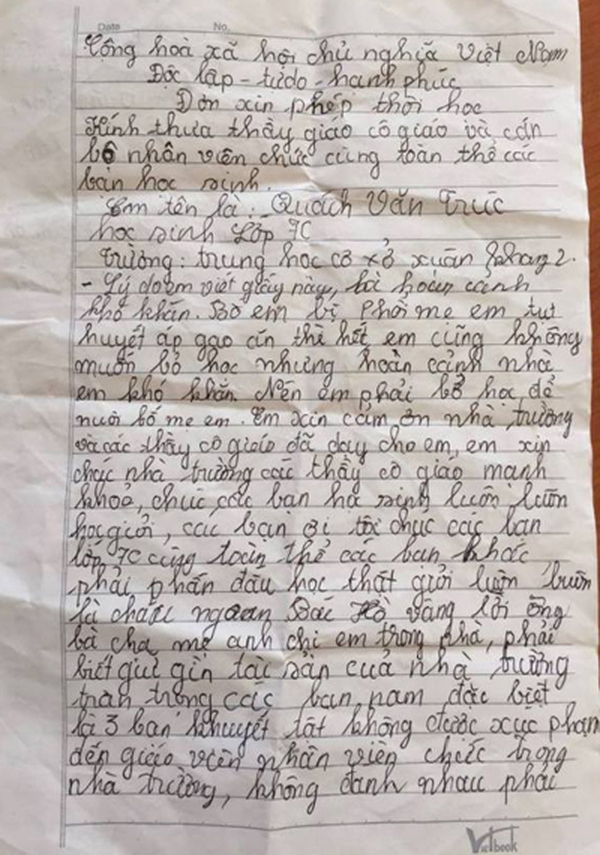 Date No.
Cộng hoà xã hội chủ nghĩa Việt Nam
Độc lập - tự do - hanh phúc
Đơn xin phép thôi học
Kính thưa thầy giáo cô giáo và cán
bộ nhân viên chức cùng toàn thể các
bạn học sinh.
Em tên là: Quách Văn Trúc
học sinh Lớp 7C
Trường: trung học cơ xở xuân khang 2.
- Lý do em viết giấy này, là hoàn cảnh
khó khăn. Bố em bị phổi mẹ em tụt
huyết áp gạo ăn thì hết em cũng không
muốn bỏ học nhưng hoàn cảnh nhà
em khó khăn. Nên em phải bỏ học để
nuôi bố mẹ em. Em xin cảm ơn nhà trường
và các thầy cô giáo đã dạy cho em, em xin
chúc nhà trường các thầy cô giáo mạnh
khoẻ, chúc các bạn học sinh luôn luôn
học giởi, các bạn ơi tôi chúc các bạn
lớp 7C cùng toàn thể các bạn khác
phải phấn đấu học thật giởi luôn luôn
là cháu ngoan Bác Hồ vâng lời ông
bà cha mẹ anh chị em trong nhà, phải
biết giữ gìn tài sản của nhà trường
trân trọng các bạn nam đặc biệt
là 3 bạn khuyết tật không được xục phạm
đến giáo viên nhân viên chức trong
nhà trường, không đánh nhau phải
Vietbook